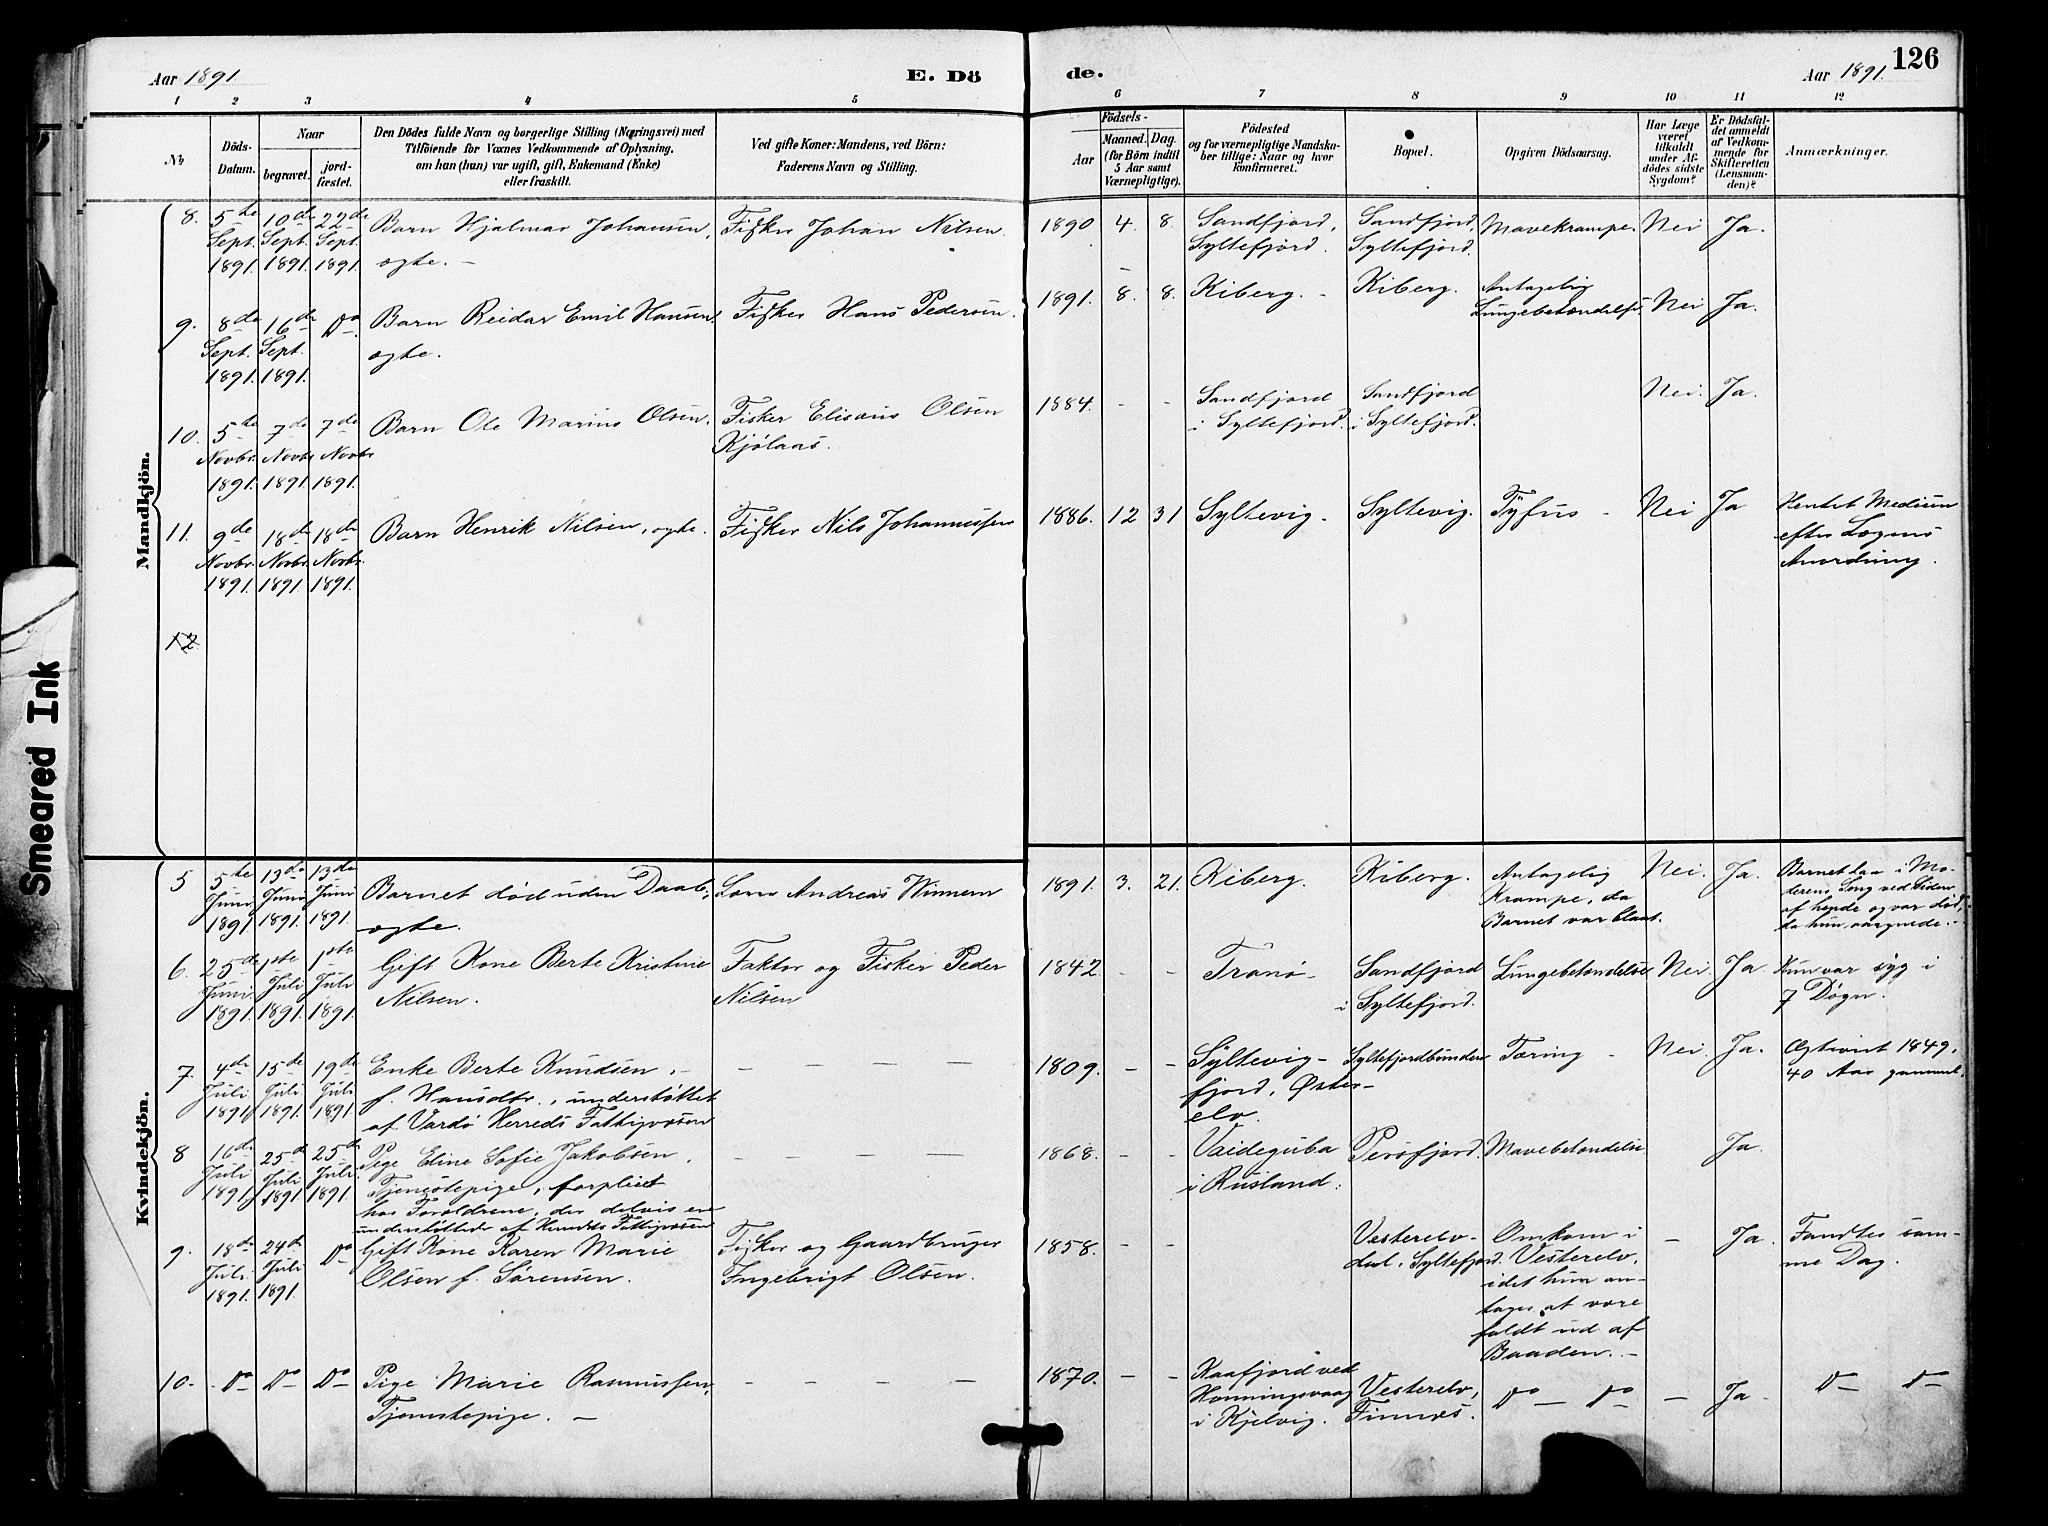 Aar 1891. E. Dö
de. Aar 1891. 126
1 2 3 4 5
6 7 8 9 10 11 12
No
Döds-
Datum.
Naar
begravet.
jord-
fæstet.
Den Dödes fulde Navn og borgerlige Stilling (Næringsvei) med
Tilföiende for Voxnes Vedkommende af Oplysning,
om han (hun) var ugift, gift, Enkemand (Enke)
eller fraskilt.
Ved gifte Koner: Mandens, ved Börn:
Faderens Navn og Stilling.
Födsels-
Aar
Maaned. Dag.
(for Börn indtil
5 Aar samt
Værnepligtige).
Födested
og for værnepligtige Mandska-
ber tillige: Naar og hvor
konfirmeret.
Bopæl.
Opgiven Dödsaarsag.
Har Læge
været
tilkaldt
under Af-
dödes sidste
Sygdom?
Er Dödsfal-
det anmeldt
af Vedkom-
mende for
Skifteretten
(Lensman-
den)?
Anmærkninger.
Mandkjön.
8.
5te
Sept.
1891.
10de
Sept.
1891.
22de
Sept.
1891.
Barn Hjalmar Johansen,
ægte. —
Fisker Johan Nilsen.
1890 4. 8.
Sandfjord,
Syltefjord.
Sandfjord,
Syltefjord.
Mavekrampe.
Nei
Ja.
9.
8de
Sept.
1891.
16de
Sept.
1891.
Do
Barn Reidar Emil Hansen,
ægte.
Fisker Hans Pedersen.
1891. 8. 8.
Kiberg. -
Kiberg.
Antagelig
Lungebetændelse
Nei
Ja.
10.
5te
Novbr.
1891.
7de
Novbr
1891.
7de
Novbr
1891.
Barn Ole Marius Olsen.
Fisker Elisæus Olsen
Kjölaas.
1884. - -
Sandfjord
i Syltefjord.
Sandfjord
i Syltefjord.
Nei.
Ja.
11.
9de
Novbr.
1891.
18de
Novbr.
1891.
18de
Novbr.
1891.
Barn Henrik Nilsen, ægte.
Fisker Nils Johannessen
1886. 12 31
Syltevig.
Syltevig.
Tyfus -
Nei
Ja
Hentet Medicin
efter Lægens
Anordning.
12
Kvindekjön.
5
5te
Juni
1891
13de
Juni
1891.
13de
Juni
1891.
Barnet død uden Daab,
ægte.
Andreas Winnem
1891. 3. 21.
Kiberg.
Kiberg.
Antagelig
Krampe, da
Barnet var blaat.
Nei.
Ja.
Barnet laa i Mo-
derens Seng ved Siden
af hende og var død,
da hun vaagnede. -
6.
25de
Juni
1891.
1ste
Juli
1891.
1ste
Juli
1891.
Gift Kone Berte Kristine
Nilsen.
Faktor og Fisker Peder
Nilsen
1842 - -
Tranø -
Sandfjord
i Syltefjord.
Lungebetændelse
Nei.
Ja.
Hun var syg i
7 Døgn.
7.
4de
Juli
1891
15de
Juli
1891.
19de
Juli
1891.
Enke Berte Knudsen, -
f. Hansdtr., understøttet
af Vardø Herreds Fattigvæsen
— — — —
1809. - -
Syltevig-
fjord, Øster-
elv.
Syltefjordbunden
Tæring -
Nei.
Ja.
Ægteviet 1849,
40 Aar gammel.
8
16de
Juli
1891
25de
Juli
1891
25de
Juli
1891.
Pige Eline Sofie Jakobsen,
Tjenestepige, forpleiet
hos Forældrene, der delvis ere
understøttede af Herredets Fattigvæsen
— — — —
1868. - -
Vaideguba
i Rusland.
Persfjord.
Mavebetændelse
Ja.
9.
18de
Juli
1891.
24de
Juli
1891.
Do
Gift Kone Karen Marie
Olsen f. Sørensen.
Fisker og Gaardbruger
Ingebrigt Olsen.
1858. - -
Vesterelv-
dal, Syltefjord.
Omkom i
Vesterelv,
idet hun an-
tages at være
faldt ud af
Baaden. -
-
Ja.
Fandtes sam-
me Dag.
10.
Do
Do
Do
Pige Marie Rasmussen,
Tjenestepige. —
— — — —
1870. - -
Kaafjord ved
Honningsvaag
i Kjelvig.
Vesterelv,
Finnæs.
Do — Do
-
Ja -
Do Do
Smeared Ink